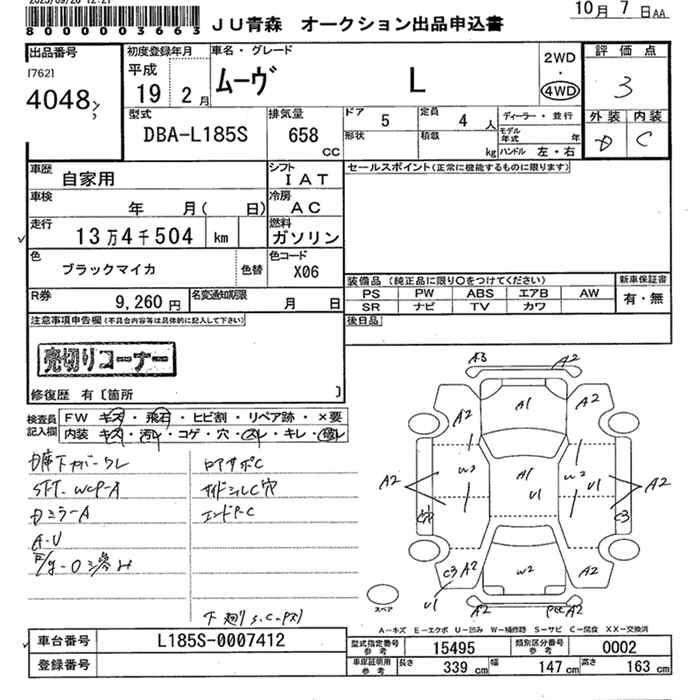 8 0 0 0 0 0 3 6 6 3 JU青森 オークション出品申込書 10月 7日AA
出品番号 初度登録年月 車名・グレード 2WD 評価点
[762] 平成 ムーヴ L ・ 3
4048 19 2月 4WD 外装 内装
型式 排気量 ドア 5 定員 4人 ディーラー・並行 D C
DBA-L185S 658 cc 形状 積載 kg モデル年式 年
ハンドル 左・右
車歴 自家用 シフト IAT セールスポイント(正常に機能するものに限ります)
車検 年 月( 日) 冷房 AC
走行 13万4千504 km 燃料 ガソリン
色 ブラックマイカ 色替 色コード X06
装備品 (純正品に限り○をつけてください) 新車保証書
R券 9,260円 名変通知期限 月 日 PS PW ABS エアB AW 有・無
SR ナビ TV カワ
注意事項申告欄(不具合内容等は具体的に記入して下さい) 後日品
売切りコーナー
修復歴 有〔箇所 〕
検査員 FW キズ・飛石・ヒビ割・リペア跡・×要
記入欄 内装・キズ・汚レ・コゲ・穴・スレ・キレ・破レ
ミラーA
A-U
A3 A2
A2 A1 A2
A2 W2 A1 U1 W2 U1 A2
C3
C3 A2 W2 A2
U1 A2 A2
スペア
A-キズ E-エクボ U-凹み W-補修跡 S-サビ C-腐食 XX-交換済
車台番号 L185S-0007412 型式指定番号 参考 15495 類別区分番号 参考 0002
登録番号 車庫証明用 参考 長さ 339cm 幅 147cm 高さ 163cm